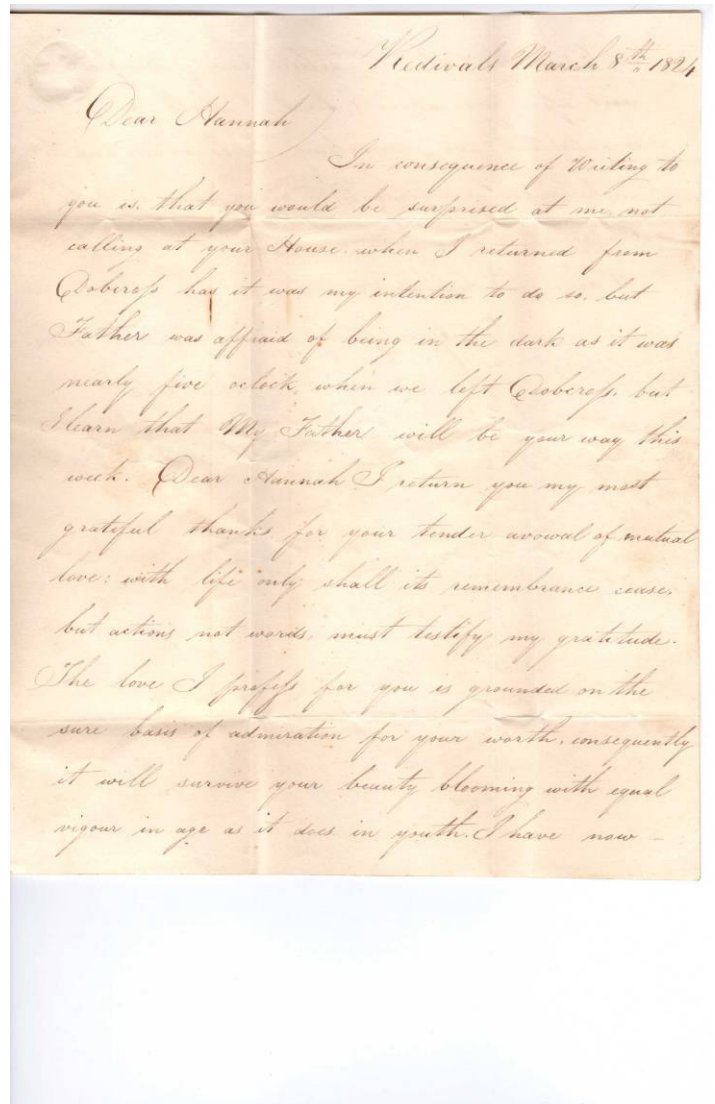 Redivals March 8th 1824
Dear Hannah
In consequence of Writing to
you is, that you would be surprised at me not
calling at your House. when I returned from
Dobcross has it was my intention to do so, but
Father was affraid of being in the dark as it was
nearly five oclock, when we left Dobcross. but
I learn that My Father will be your way this
week. Dear Hannah I return you my most
grateful thanks for your tender avowal of mutual
love: with life only shall its remembrance cease,
but actions not words, must testify my gratitude.
The love I profess for you is grounded on the
sure basis of admiration for your worth, consequently
it will survive your beauty blooming with equal
vigour in age as it does in youth. I have now –